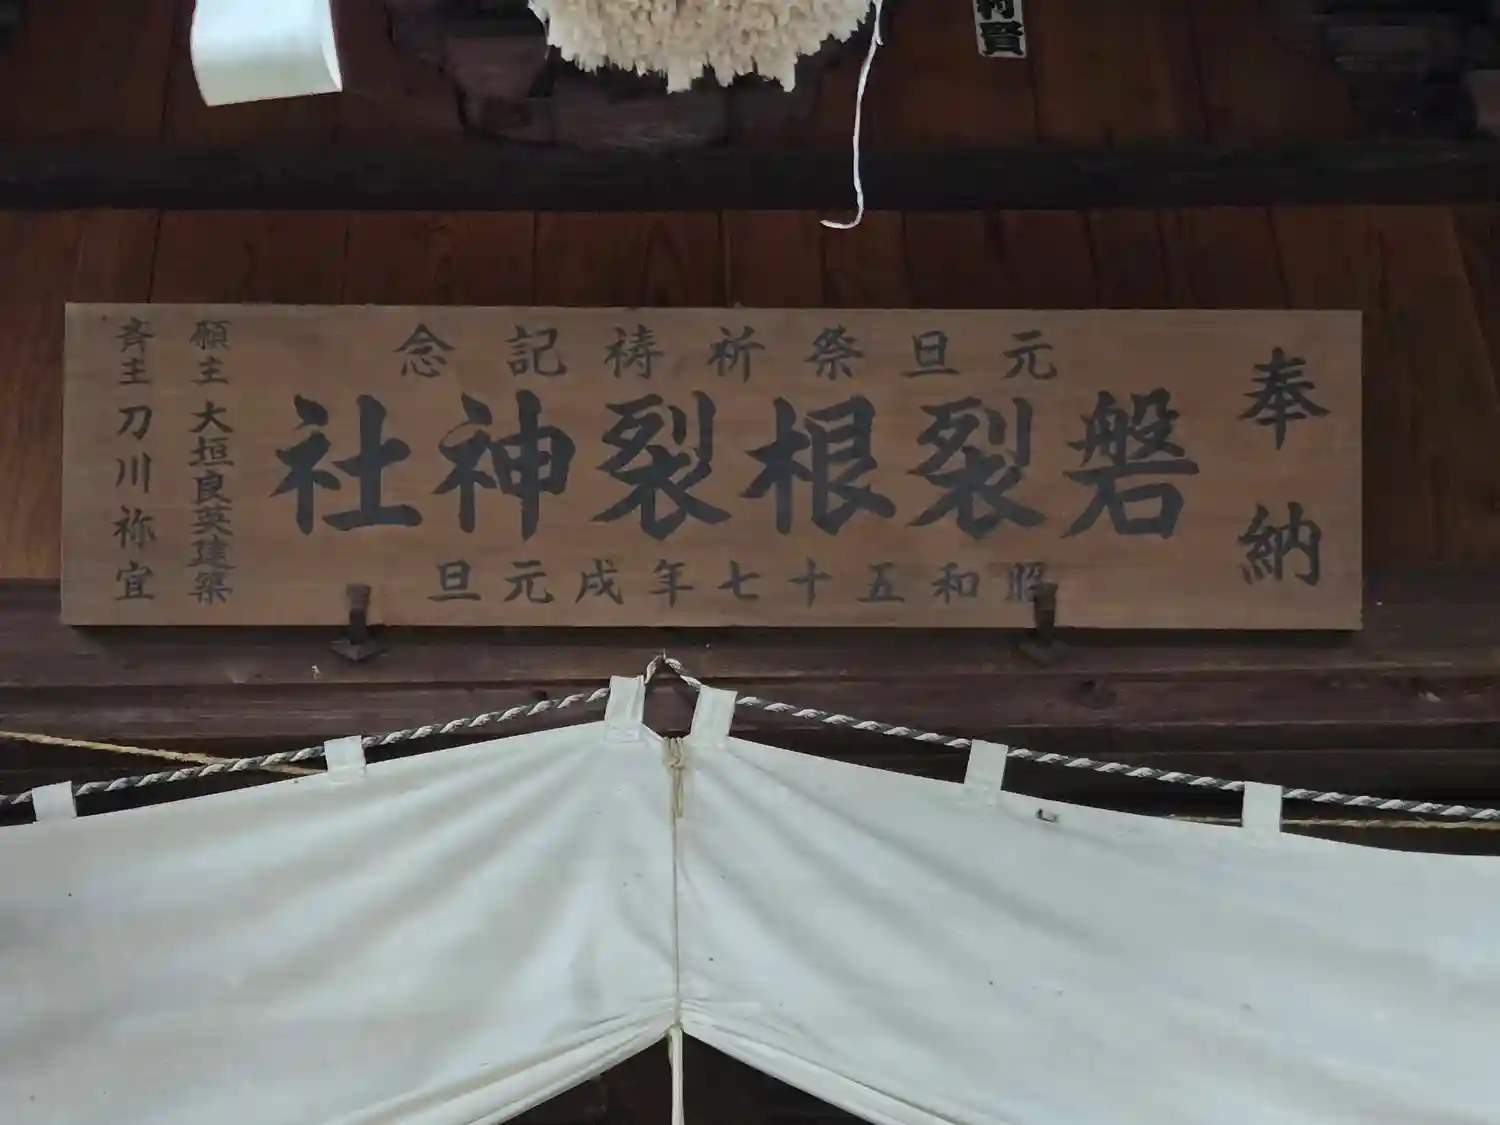 奉納
元旦祭祈祷記念
磐裂根裂神社
昭和五十七年戌元旦
願主 大垣良英建築
斉主 刀川祢宜
村賢